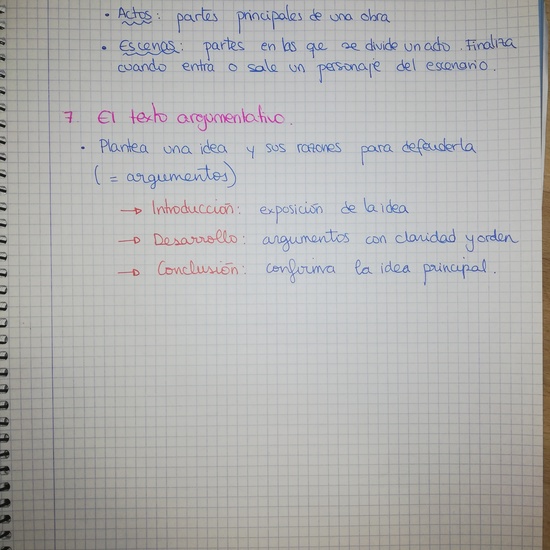 • Actos: partes principales de una obra
• Escenas: partes en las que se divide un acto. Finaliza
cuando entra o sale un personaje del escenario.
7 El texto argumentativo.
• Plantea una idea y sus razones para defenderla
(= argumentos)
→ Introducción: exposición de la idea
→ Desarrollo: argumentos con claridad y orden
→ Conclusión: confirma la idea principal.